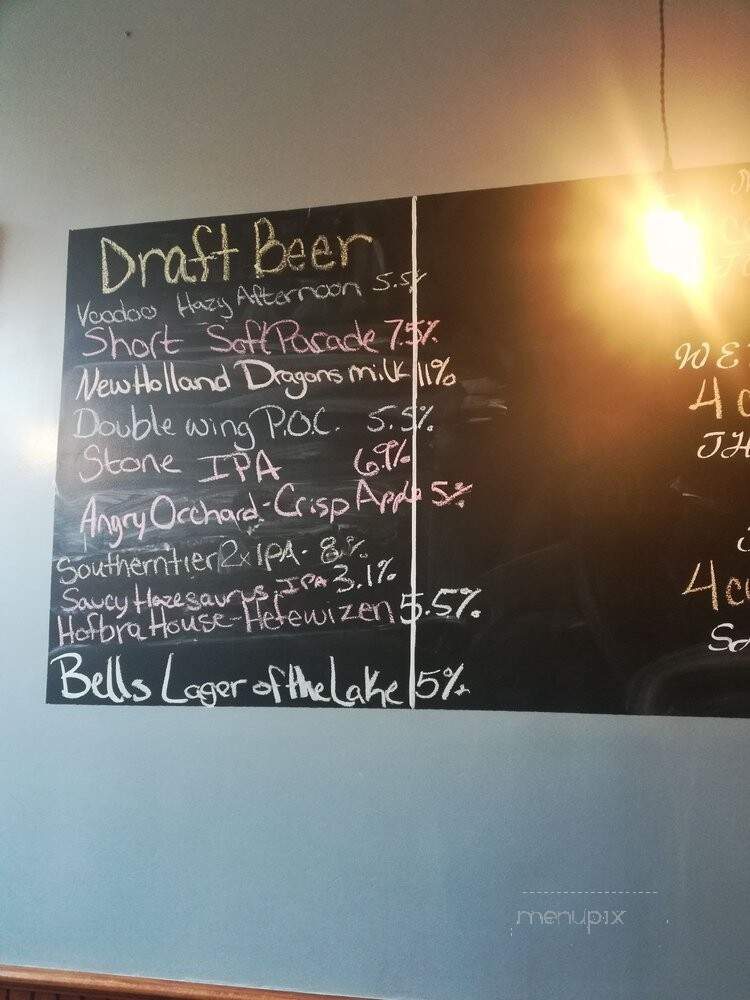 Draft Beer
Voodoo Hazy Afternoon 5.5%
Short Soft Parade 7.5%
New Holland Dragons milk 11%
Double wing P.O.C. 5.5%
Stone IPA 6.9%
Angry Orchard-Crisp Apple 5%
Southerntier 2x IPA- 8%
Saucy Hazesaurus IPA 3.1%
Hofbra House-Hefewizen 5.5%
Bells Lager of the Lake 5%
WE
4
TH
4
menupix